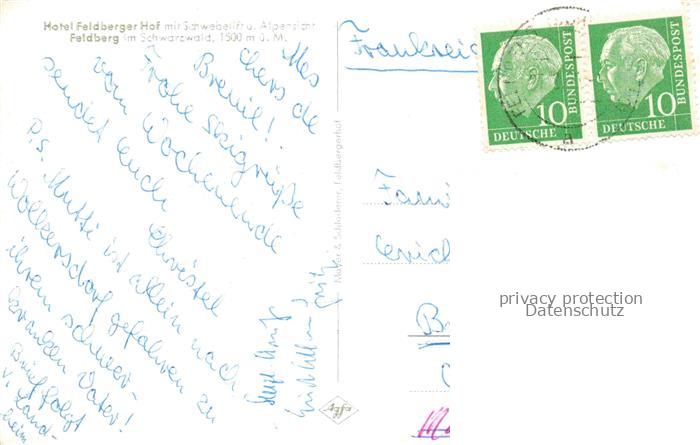 Hotel Feldberger Hof mit Schwebelift u. Alpensicht
Feldberg im Schwarzwald, 1500 m ü. M.
Mes
chers de
Breuil!
Frohe Skigrüße
vom Wochenende
sendet euch Christel
P.S. Mutti ist allein nach
Wolkersdorf gefahren zu
ihrem schwer-
kranken Vater!
Brief folgt
v. Land-
heim
Fritz
Mayer & Schlöderer, Feldbergerhof
Agfa
Frankreic
Fami
10
DEUTSCHE
BUNDESPOST
10
DEUTSCHE
BUNDESPOST
privacy protection
Datenschutz